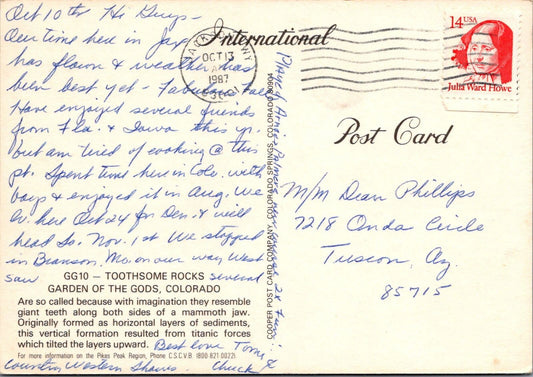 Oct 10th Hi Guys -
Our time here in Jax
has flown & weather has
been best yet - Fabulous Fall
Have enjoyed several friends
from Fla. & Iowa this yr.
but am tired of cooking @ this
pt. Spent time here in Colo. with
boys & enjoyed it in Aug. We
lv. here Oct 24 for Den. & will
head So. Nov. 1st We stopped
in Branson, Mo. on our way West
saw several
GG10 — TOOTHSOME ROCKS
GARDEN OF THE GODS, COLORADO
Are so called because with imagination they resemble
giant teeth along both sides of a mammoth jaw.
Originally formed as horizontal layers of sediments,
this vertical formation resulted from titanic forces
which tilted the layers upward.
Best love Toni &
For more information on the Pikes Peak Region, Phone C.S.C.V.B. (800-821-0022).
Country Western Shows. Chuck
International
Post Card
OCT 13
1987
14 USA
Julia Ward Howe
COOPER POST CARD COMPANY, COLORADO SPRINGS, COLORADO 80904
M/M Dean Phillips
7218 Onda Circle
Tuscon, Az.
85715